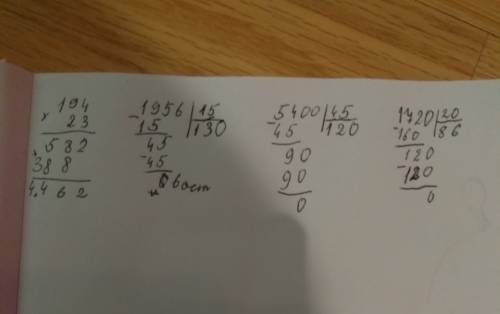 194
× 23
582
388
4.462
-1956 | 15
15 130
45
-45
6 в ост
-5400 | 45
45 120
90
90
0
1720 | 20
-160 86
120
-120
0